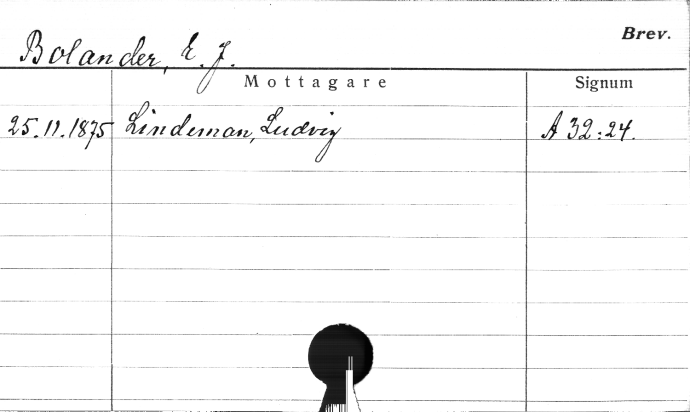 Brev.
Bolander, E. J.
Mottagare Signum
25.11.1875 Lindeman, Ludvig A 32:24.